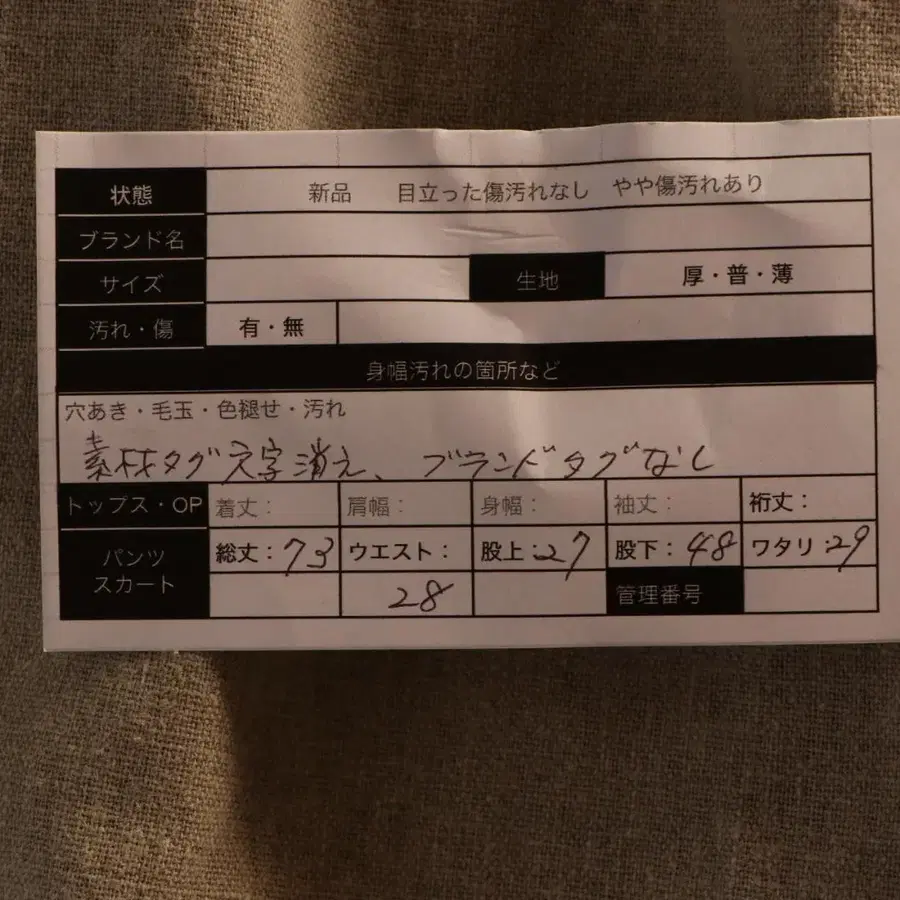 状態 新品 目立った傷汚れなし やや傷汚れあり
ブランド名
サイズ 生地 厚・普・薄
汚れ・傷 有・無
身幅汚れの箇所など
穴あき・毛玉・色褪せ・汚れ
素材タグ文字消え、ブランドタグなし
トップス・OP 着丈: 肩幅: 身幅: 袖丈: 裄丈:
パンツ 総丈:73 ウエスト: 股上:27 股下:48 ワタリ:29
スカート 28 管理番号